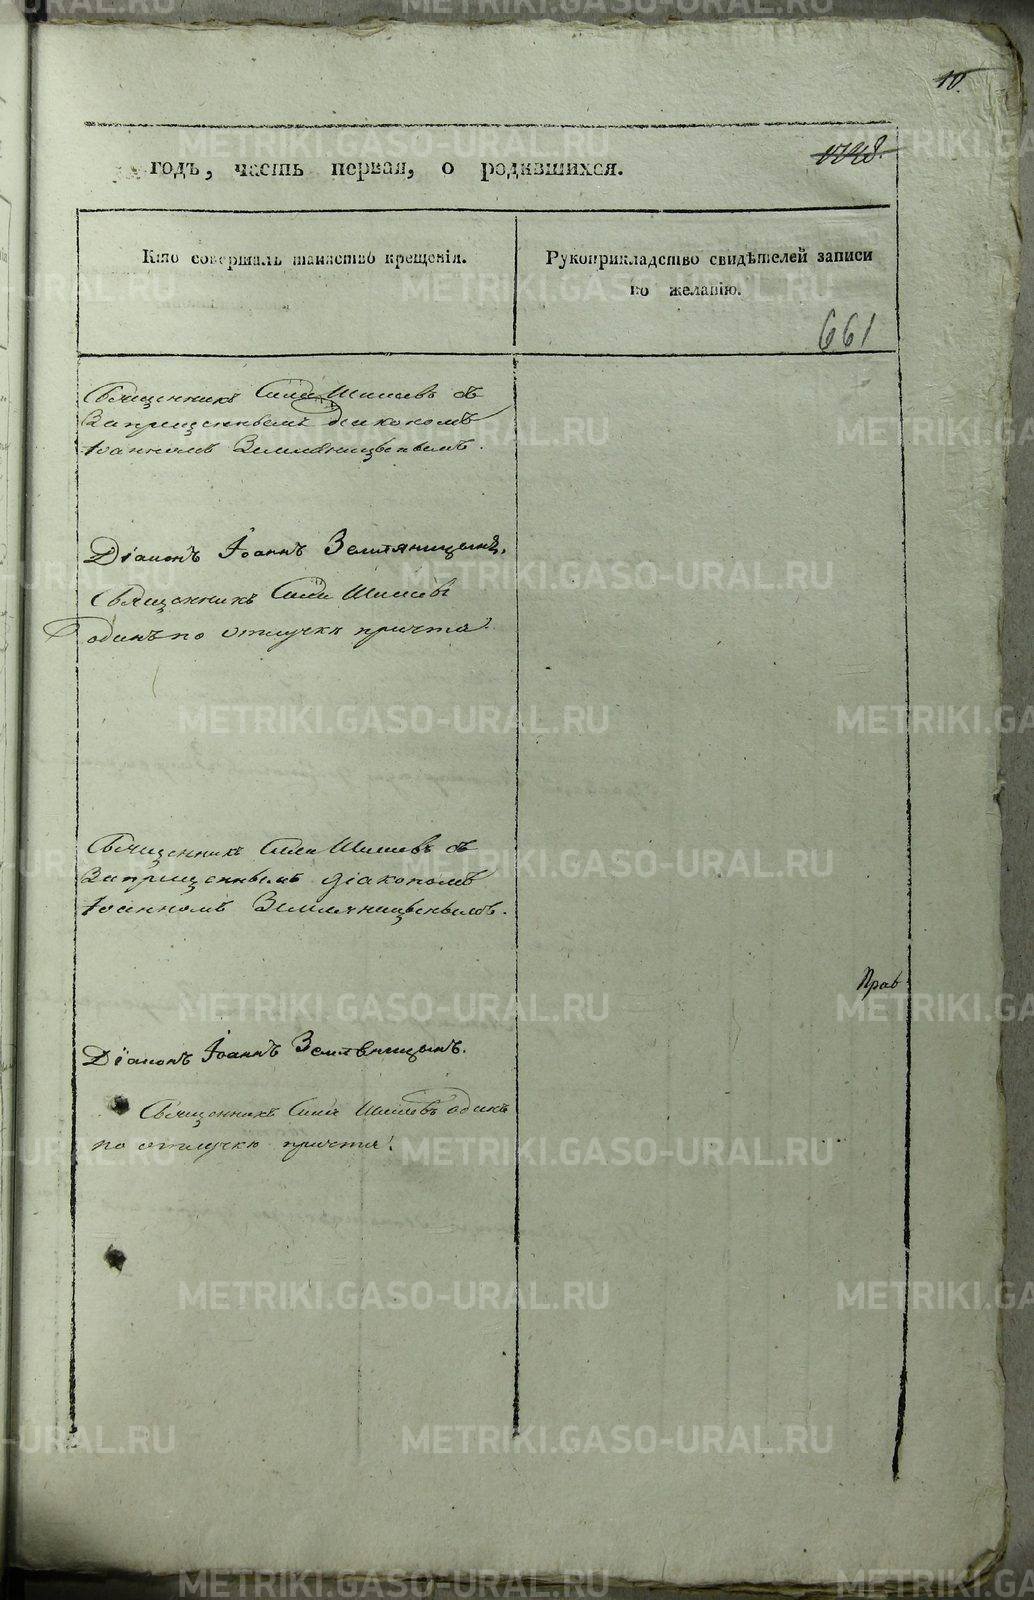 10.
годъ, часть первая, о родившихся.
Кто совершалъ таинство крещенія.
Рукоприкладство свидѣтелей записи
по желанію.
661
Священникъ Сила Шишевъ съ
Запрещеннымъ діакономъ
Іоанномъ Земляницынымъ.
Діаконъ Іоаннъ Земляницынъ.
Священникъ Сила Шишевъ
одинъ по отлучкѣ причта.
Священникъ Сила Шишевъ съ
Запрещеннымъ діакономъ
Іоанномъ Земляницынымъ.
Прав
Діаконъ Іоаннъ Земляницынъ.
Священникъ Сила Шишевъ одинъ
по отлучкѣ причта.
METRIKI.GASO-URAL.RU